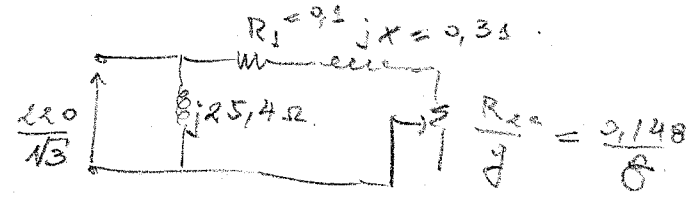 R₁ = 0,1 jx = 0,31.
220/√3
j25,4 Ω.
R₂/g = 0,148/g